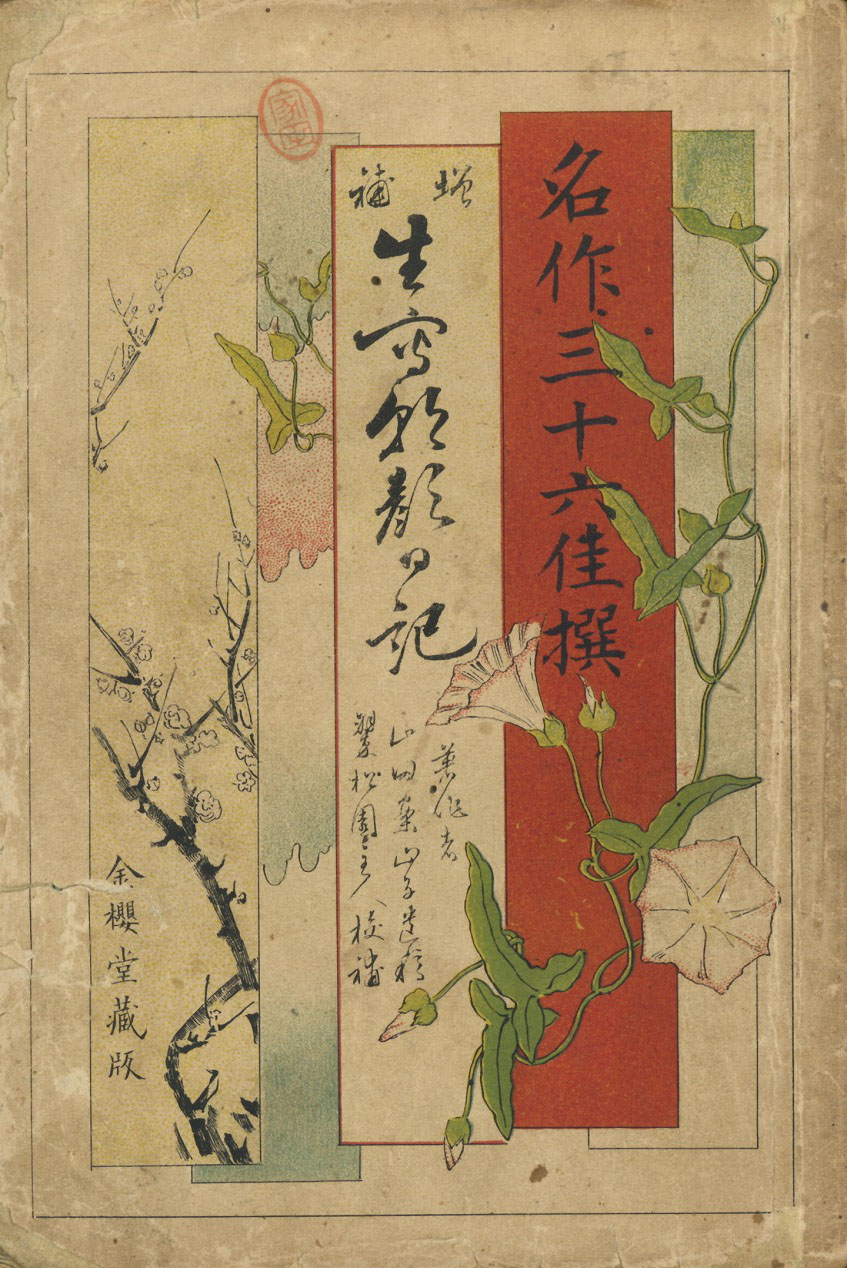 名作三十六佳撰
増補
生寫朝顔日記
作者
山田案山子遺稿
翠松園主人校補
金櫻堂藏版